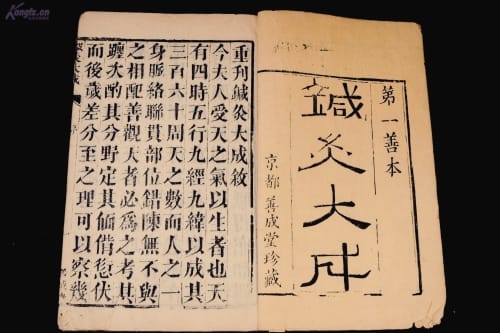 Kongfz.cn
第一善本
鍼灸大成
京都善成堂珍藏
重刋鍼灸大成敘
今夫人受天之氣以生者也天
有四時五行九經九緯以成其
三百六十周天之數而人之一
身脈絡聯貫部位錯陳無不與
之相配善觀天者必為之考其
躔次酌其分野定其愆伏
而後歲差分至之理可以察幾